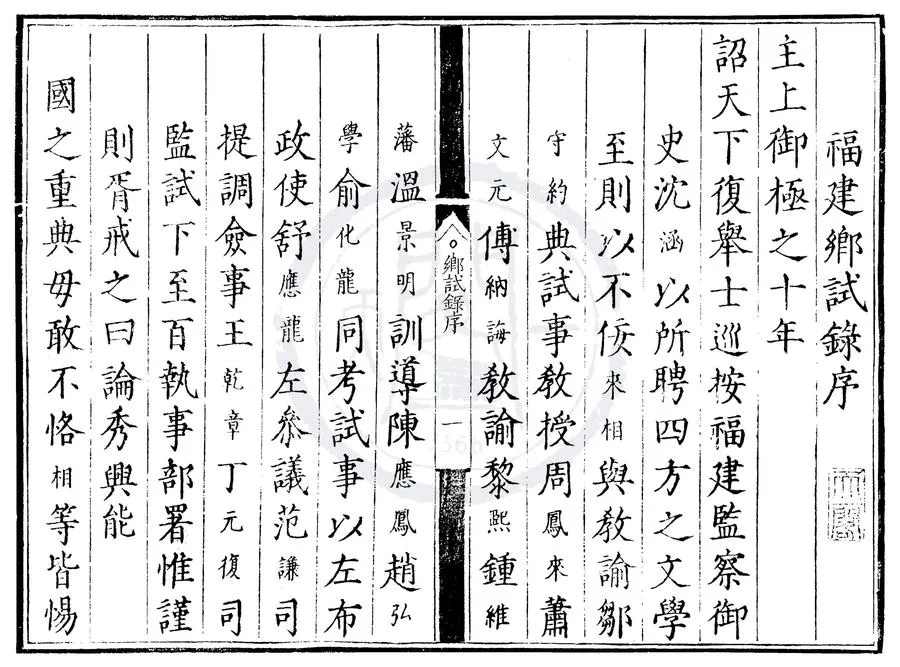 福建鄉試錄序
主上御極之十年
詔天下復舉士巡按福建監察御
史沈涵以所聘四方之文學
至則以不佞來相與教諭鄒
守約典試事教授周鳳來蕭
文元傅納誨教諭黎熙鍾維
鄉試錄序
一
藩溫景明訓導陳應鳳趙弘
學俞化龍同考試事以左布
政使舒應龍左叅議范謙司
提調僉事王乾章丁元復司
監試下至百執事部署惟謹
則胥戒之曰論秀興能
國之重典毋敢不恪相等皆惕